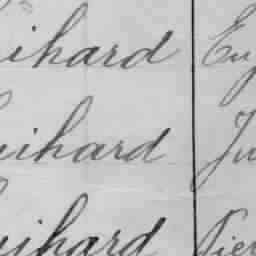 ihard Eug
uihard Ju
uihard Pier